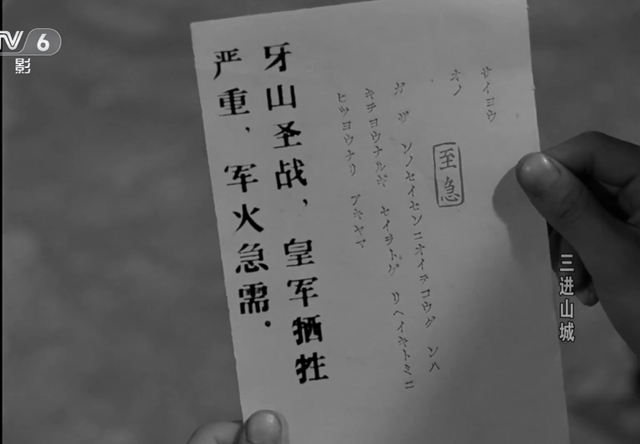 TV 6
影
サイヨウ
オノ
至急
ガザンノセイセンニオイテコウグンハ
キチヨウナルギセイヲトゲリヘイキトミニ
ヒツヨウナリ アキヤマ
牙山圣战，皇军牺牲
严重，军火急需．
三进山城